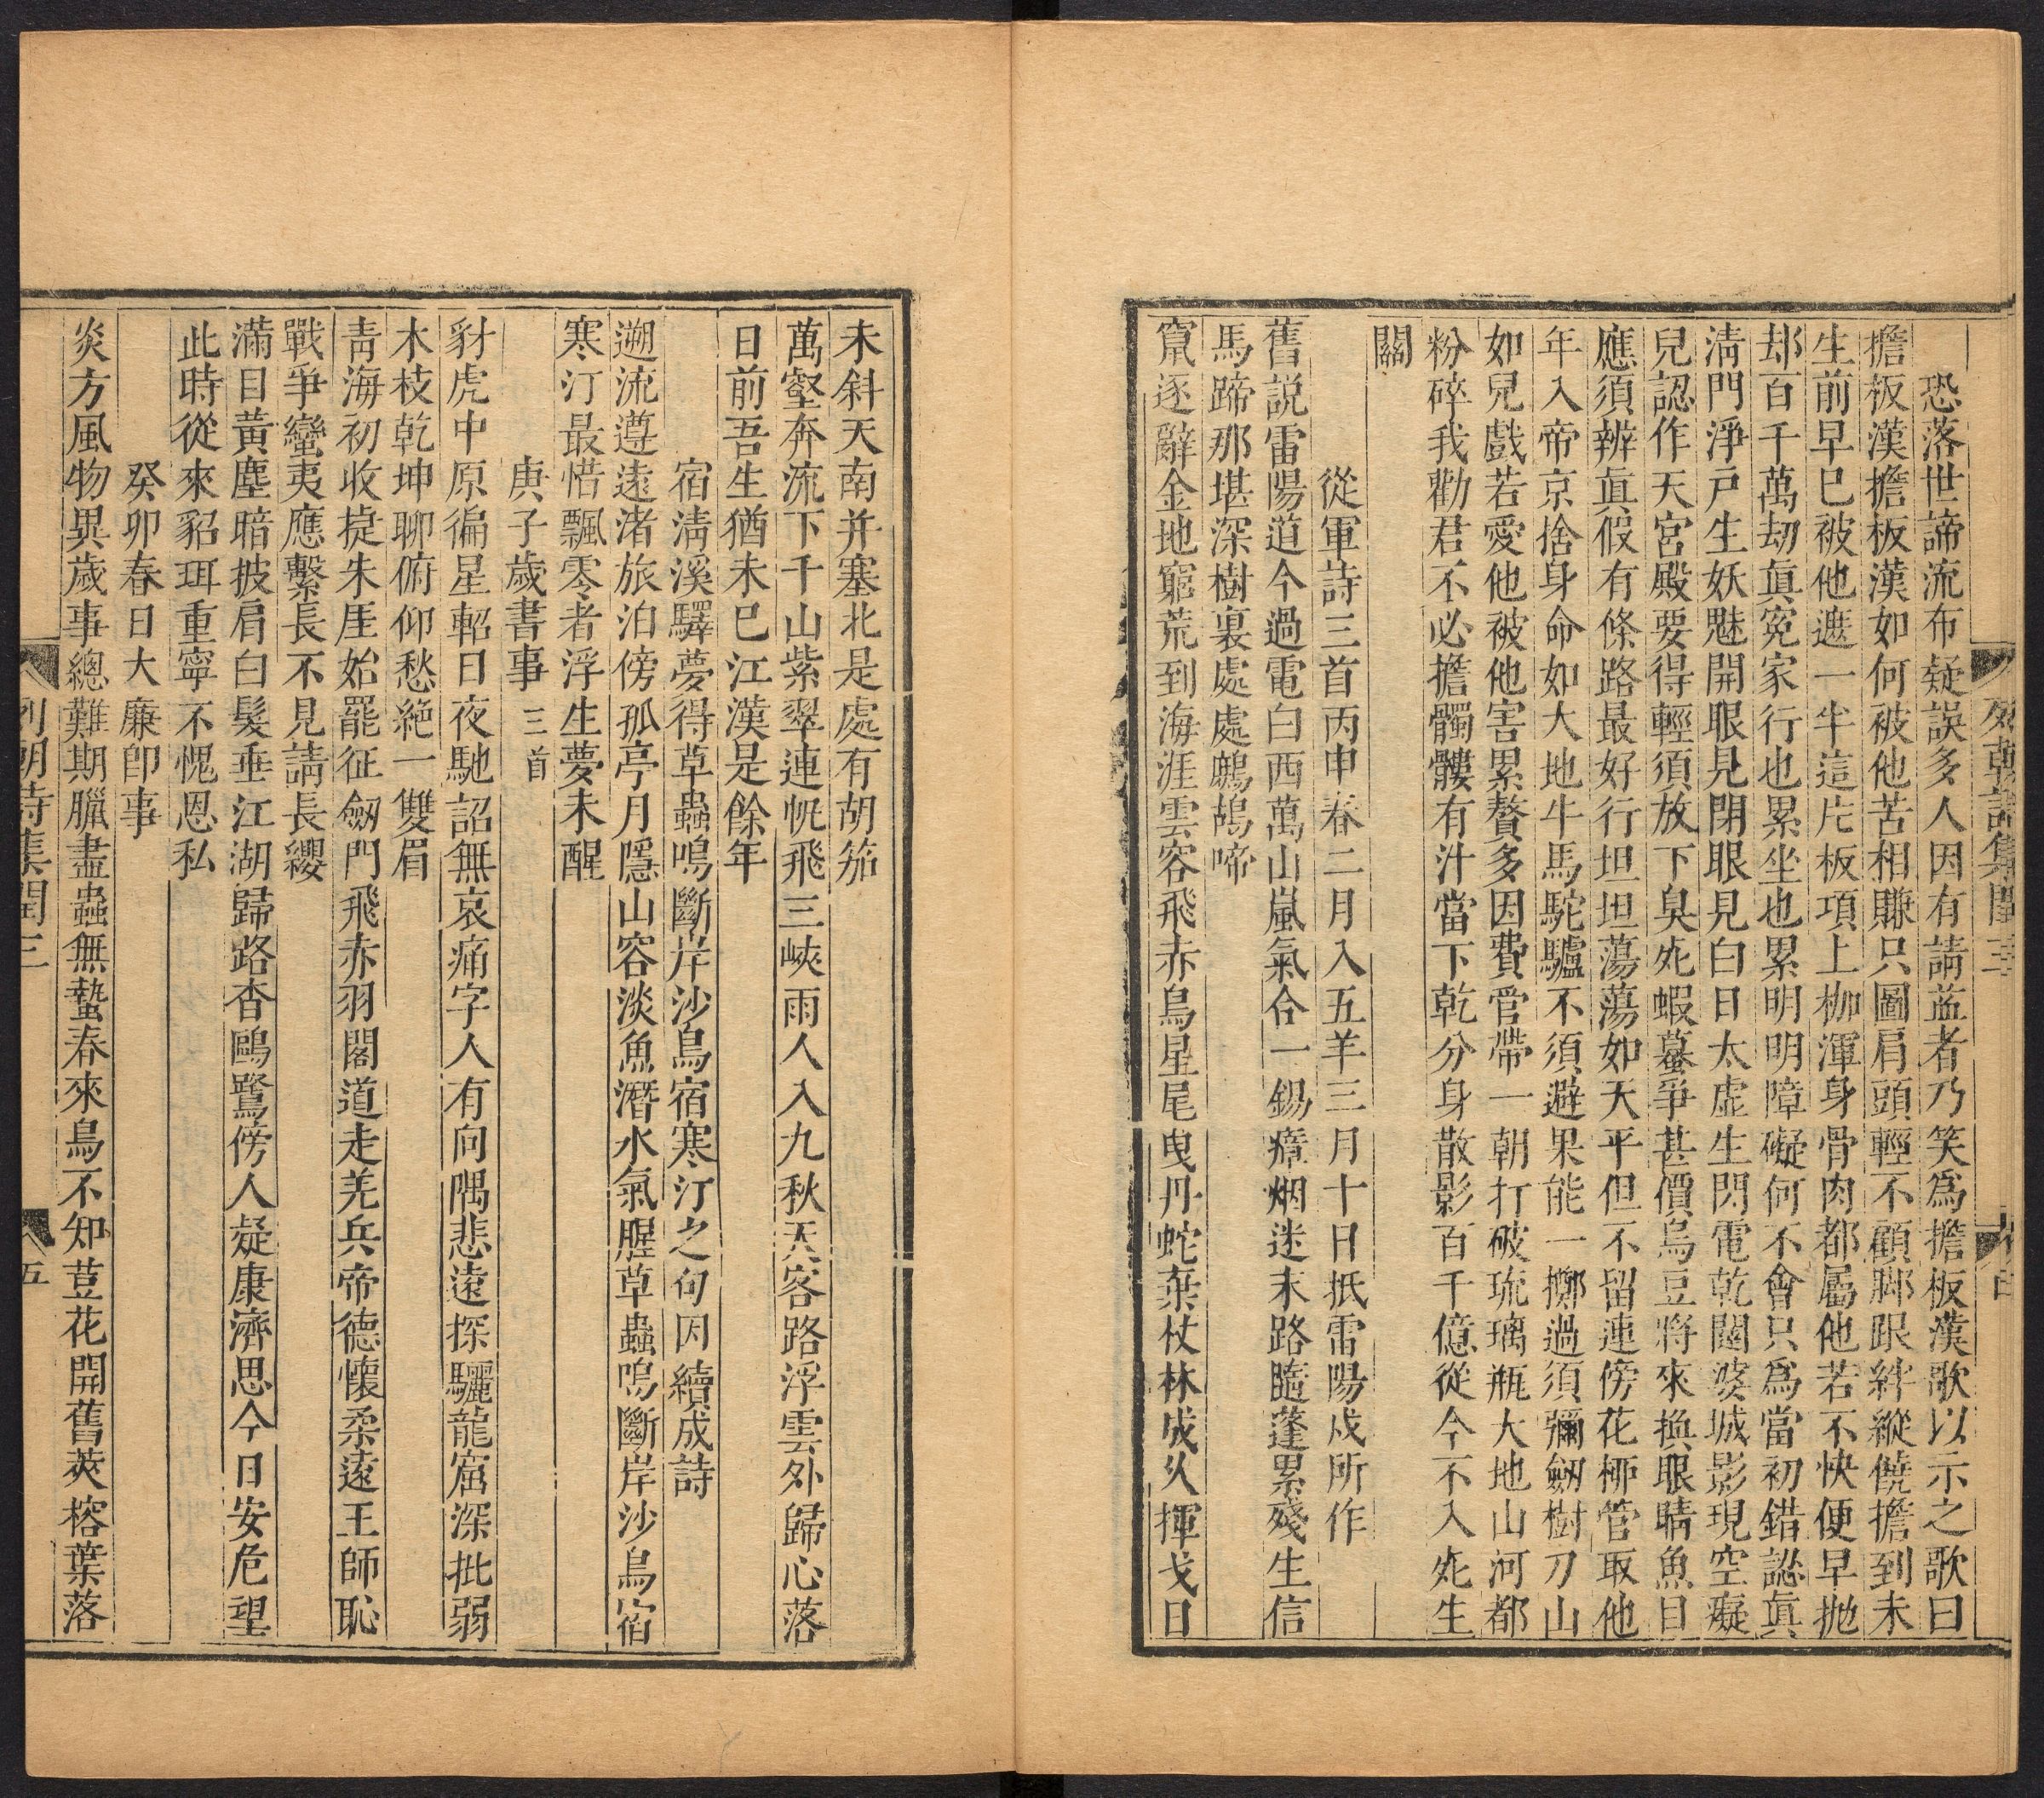 列朝詩集閏三
恐落世諦流布疑誤多人因有請益者乃笑爲擔板漢歌以示之歌曰
擔板漢擔板漢如何被他苦相賺只圖肩頭輕不顧腳跟絆縱饒擔到未
生前早已被他遮一半這片板項上枷渾身骨肉都屬他若不快便早拋
却百千萬劫眞寃家行也累坐也累明明障礙何不會只爲當初錯認眞
淸門淨戸生妖魅開眼見閉眼見白日太虛生閃電乾闥婆城影現空癡
兒認作天宮殿要得輕須放下臭死蝦蟇爭甚價烏豆將來換眼睛魚目
應須辨眞假有條路最好行坦坦蕩蕩如天平但不留連傍花柳管取他
年入帝京捨身命如大地牛馬駝驢不須避果能一擲過須彌劒樹刀山
如兒戲若愛他被他害累贅多因費管帶一朝打破琉璃瓶大地山河都
粉碎我勸君不必擔髑髏有汁當下乾分身散影百千億從今不入死生
關
從軍詩三首丙申春二月入五羊三月十日抵雷陽戍所作
舊説雷陽道今過電白西萬山嵐氣合一錫瘴烟迷末路隨蓬累殘生信
馬蹄那堪深樹裏處處鷓鴣啼
竄逐辭金地窮荒到海涯雲容飛赤烏星尾曳丹蛇棄杖林成久揮戈日
未斜天南并塞北是處有胡笳
萬壑奔流下千山紫翠連帆飛三峽雨人入九秋天客路浮雲外歸心落
日前吾生猶未已江漢是餘年
宿淸溪驛夢得草蟲鳴斷岸沙鳥宿寒汀之句因續成詩
遡流遵遠渚旅泊傍孤亭月隱山容淡魚潛水氣腥草蟲鳴斷岸沙鳥宿
寒汀最惜飄零者浮生夢未醒
庚子歲書事三首
豺虎中原徧星軺日夜馳詔無哀痛字人有向隅悲遠探驪龍窟深批弱
木枝乾坤聊俯仰愁絶一雙眉
靑海初收捷朱厓始罷征劒門飛赤羽閣道走羌兵帝德懷柔遠王師恥
戰爭蠻夷應繫長不見請長纓
滿目黃塵暗披肩白髮垂江湖歸路杳鷗鷺傍人疑康濟思今日安危望
此時從來貂珥重寧不愧恩私
癸卯春日大廉卽事
炎方風物異歲事總難期臘盡蟲無蟄春來鳥不知荳花開舊莢榕葉落
列朝詩集閏三
五